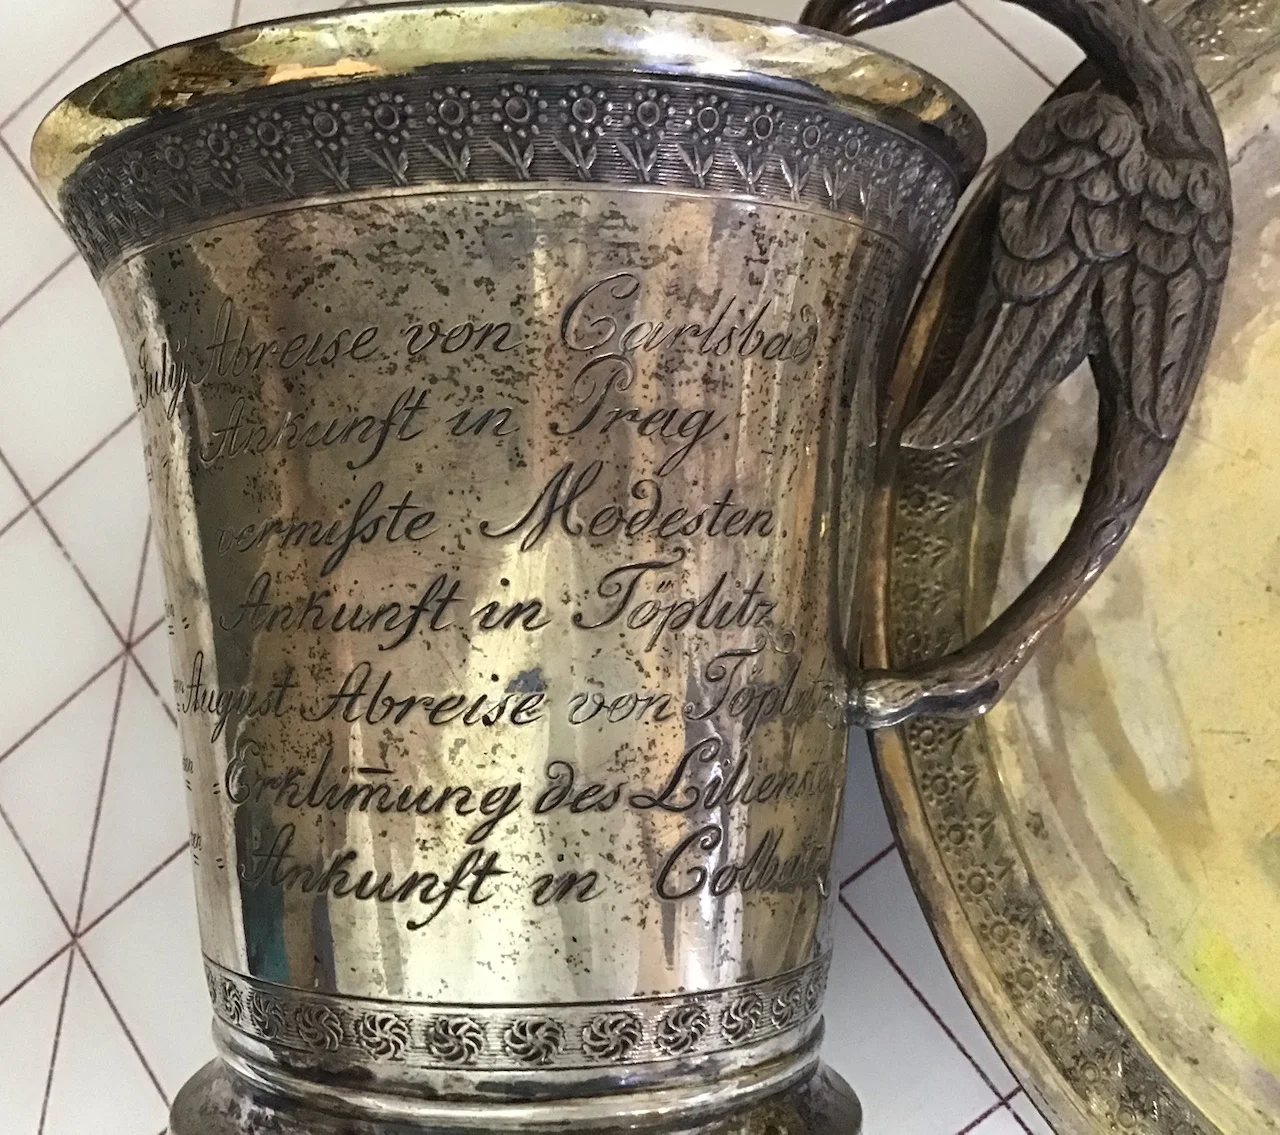 July Abreise von Carlsbad
Ankunft in Prag
vermißte Modesten
Ankunft in Töplitz
August Abreise von Töplitz
Erklim̅ung des
Ankunft in